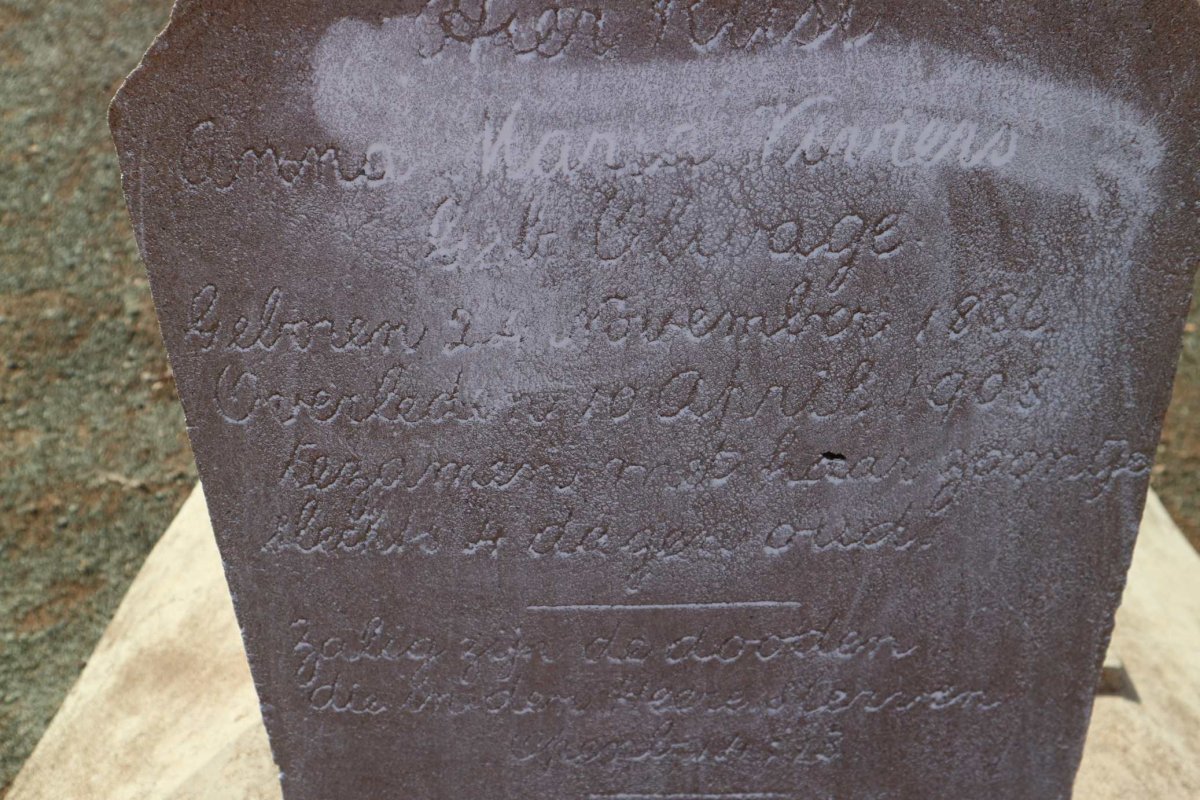 Hier Rust
Anna Maria Viviers
Geb Olivage
Geboren 24 November 1886
Overleden 10 April 1905
tezamen met haar jonge
slechts 4 dagen oud.
Zalig zijn de dooden
die in den Heere sterven
Openb 14:13